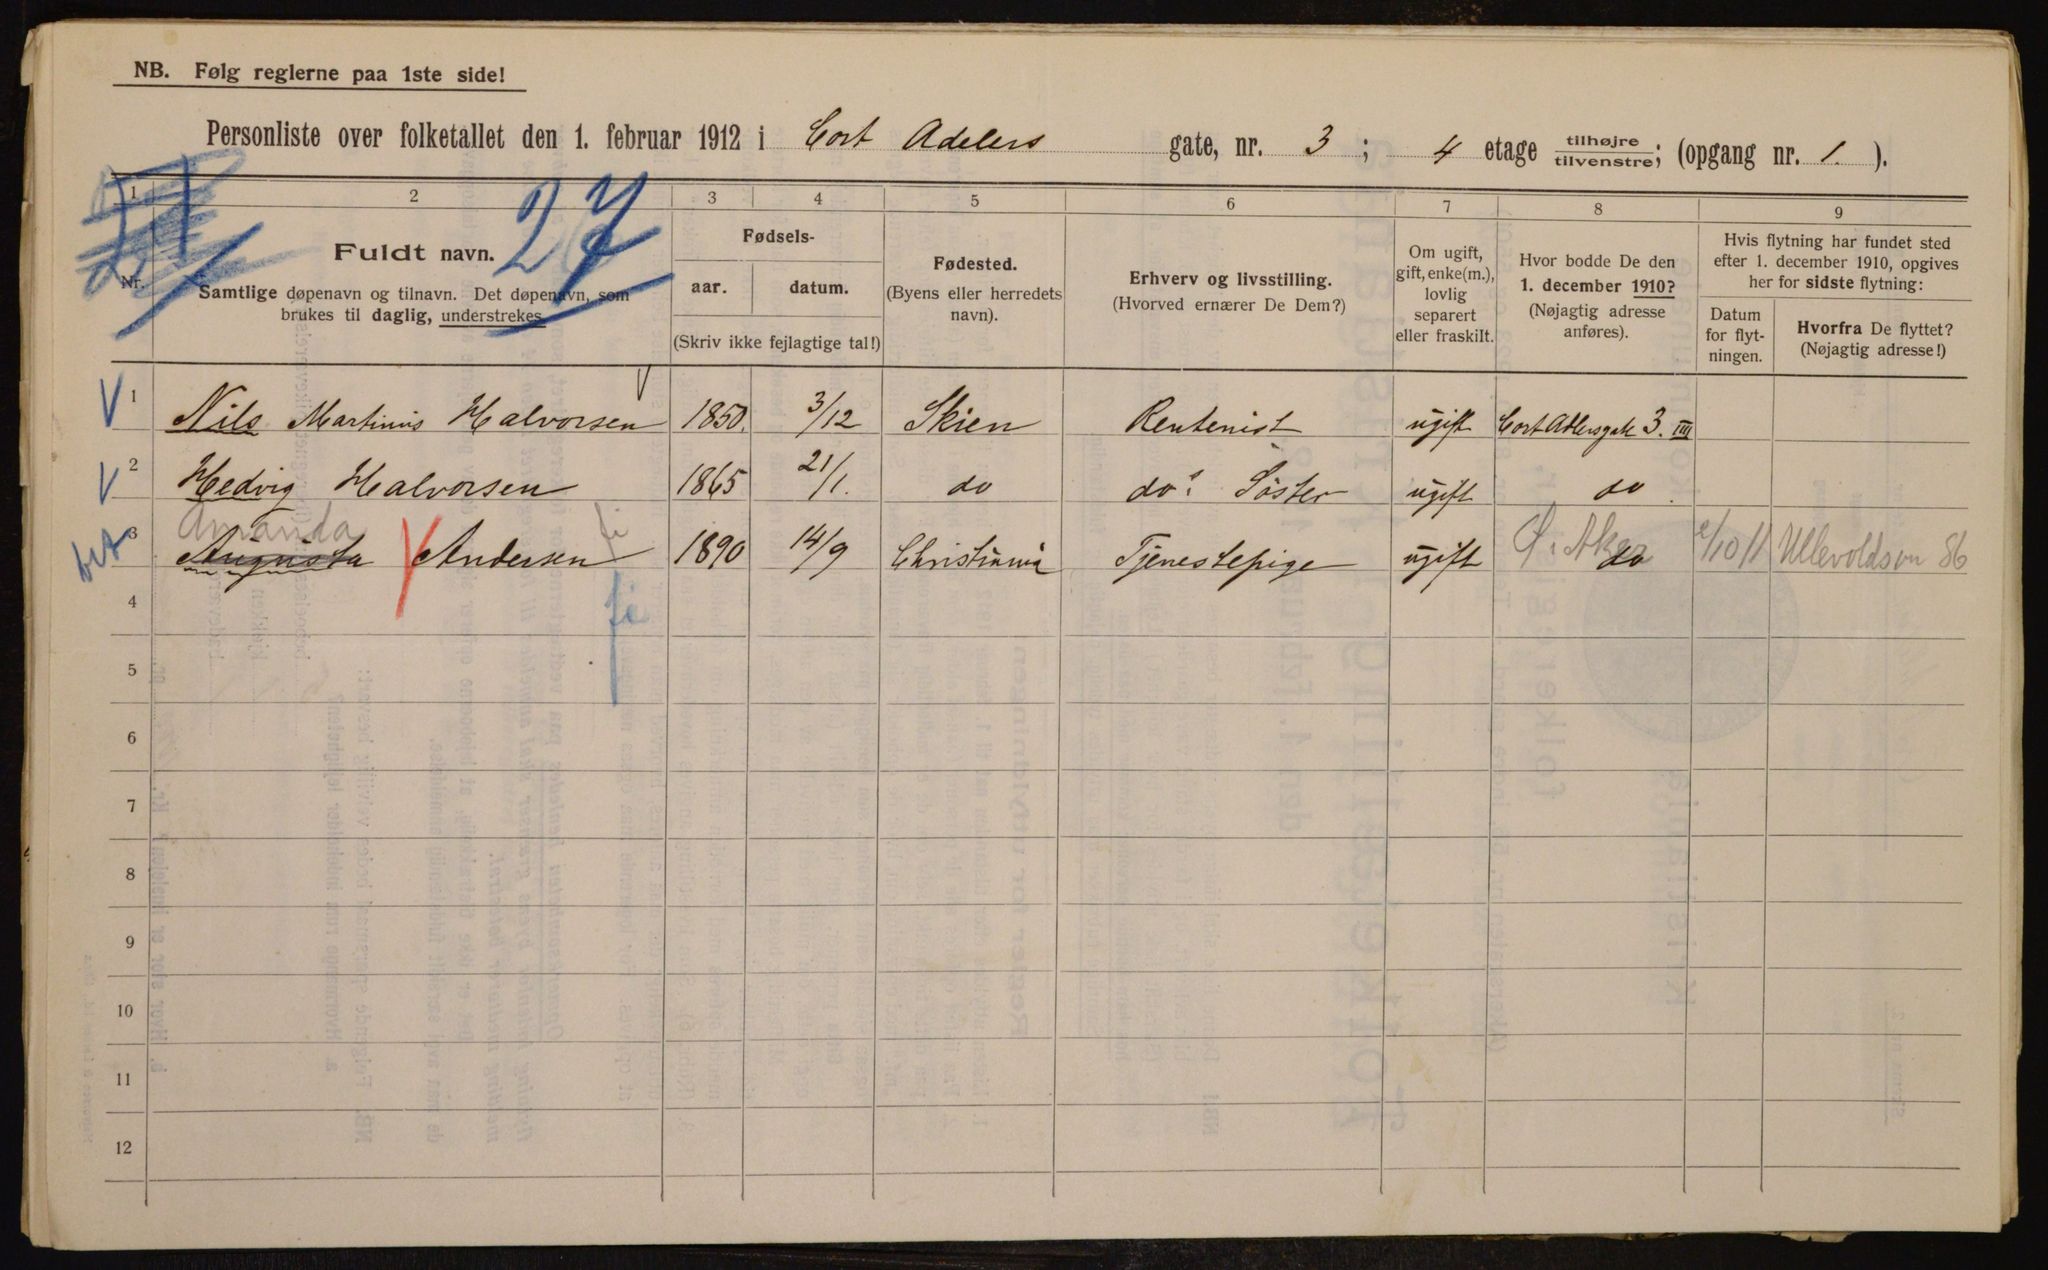 NB. Følg reglerne paa 1ste side!
Personliste over folketallet den 1. februar 1912 i Cort Adelers gate, nr. 3; 4 etage tilhøjre/tilvenstre; (opgang nr. 1.).
1 2 3 4 5 6 7 8 9
27
Nr.
Fuldt navn.
Samtlige døpenavn og tilnavn. Det døpenavn, som
brukes til daglig, understrekes.
Fødsels-
aar. datum.
(Skriv ikke fejlagtige tal!)
Fødested.
(Byens eller herredets
navn).
Erhverv og livsstilling.
(Hvorved ernærer De Dem?)
Om ugift,
gift, enke(m.),
lovlig
separert
eller fraskilt.
Hvor bodde De den
1. december 1910?
(Nøjagtig adresse
anføres).
Hvis flytning har fundet sted
efter 1. december 1910, opgives
her for sidste flytning:
Datum
for flyt-
ningen.
Hvorfra De flyttet?
(Nøjagtig adresse!)
1 Nils Martinus Halvorsen 1850. 3/12 Skien Rentenist ugift Cort Adlersgate 3. III
2 Hedvig Halvorsen 1865 21/1. do do's Søster ugift do
Amanda
3 Augusta Andersen 1890 14/9 Christiania Tjenestepige ugift do Ø. Aker /10 11 Ullevoldsvn 86
4
5
6
7
8
9
10
11
12